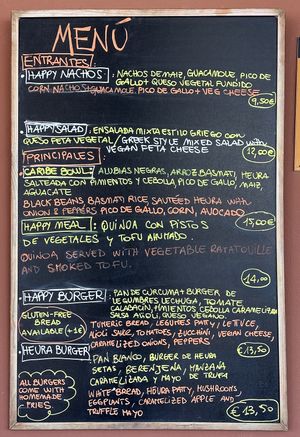 MENÚ
ENTRANTES:
HAPPY NACHOS: NACHOS DE MAIZ, GUACAMOLE, PICO DE
GALLO + QUESO VEGETAL FUNDIDO
CORN NACHOS + GUACAMOLE. PICO DE GALLO + VEG CHEESE
9,50€
HAPPY SALAD: ENSALADA MIXTA ESTILO GRIEGO CON
QUESO FETA VEGETAL / GREEK STYLE MIXED SALAD WITH
VEGAN FETA CHEESE
PRINCIPALES:
CARIBE BOWL: ALUBIAS NEGRAS, ARROZ BASMATI, HEURA
SALTEADA CON PIMIENTOS Y CEBOLLA, PICO DE GALLO, MAIZ,
AGUACATE
BLACK BEANS BASMATI RICE, SAUTEED HEURA WITH
ONION & PEPPERS PICO DE GALLO, CORN, AVOCADO
15,00€
HAPPY MEAL: QUINOA CON PISTOS
DE VEGETALES Y TOFU AHUMADO.
QUINOA SERVED WITH VEGETABLE RATATOUILLE
AND SMOKED TOFU.
14,00
HAPPY BURGER: PAN DE CURCUMA + BURGER DE
LEGUMBRES LECHUGA, TOMATE
CALABACIN, PIMIENTOS CEBOLLA CARAMELIZADA
SALSA AGOLI, QUESO VEGANO.
GLUTEN-FREE
BREAD
AVAILABLE (+1€)
TUMERIC BREAD, LEGUMES PATTY, LETTUCE,
AIOLI SAUCE, TOMATOES, ZUCCHINI, VEGAN CHEESE,
CARAMELIZED ONIONS, PEPPERS
€13,50
HEURA BURGER
PAN BLANCO, BURGER DE HEURA
SETAS, BERENJENA, MANZANA
CARAMELIZADA Y MAYO DE TRUFA
ALL BURGERS
COME WITH
HOMEMADE
FRIES.
WHITE BREAD, HEURA PATTY, MUSHROOMS
EGGPLANTS, CARAMELIZED APPLE AND
TRUFFLE MAYO
€13,50